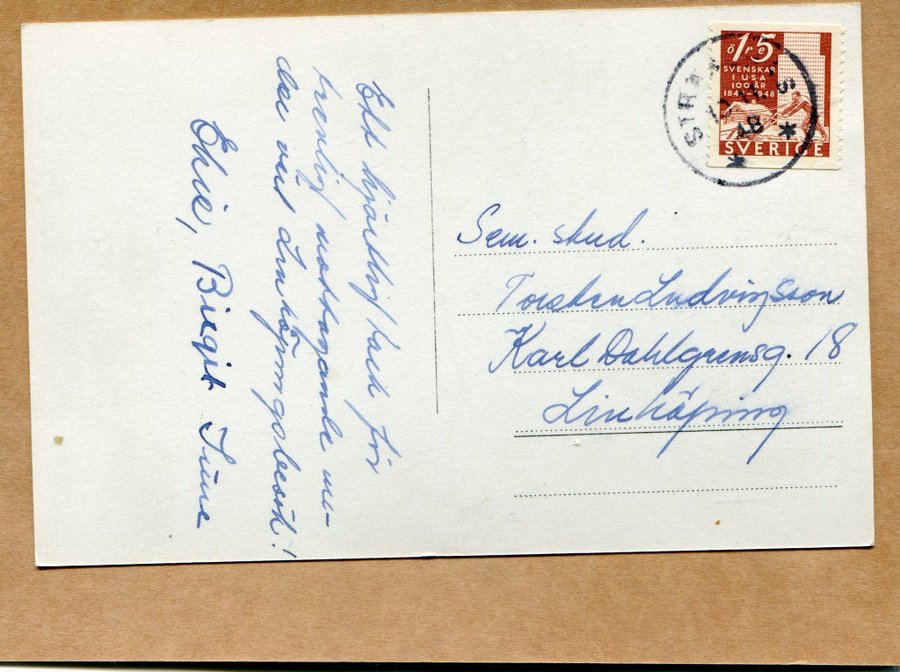 Ett hjärtligt tack för
trevligt mottagande un-
der vårt Linköpingsbesök!
Birgit Sune
15
öre
SVENSKAR
I USA
100 ÅR
1848-1948
SVERIGE
48
Sem. stud.
Torsten Ludvigsson
Karl Dahlgrensg. 18
Linköping